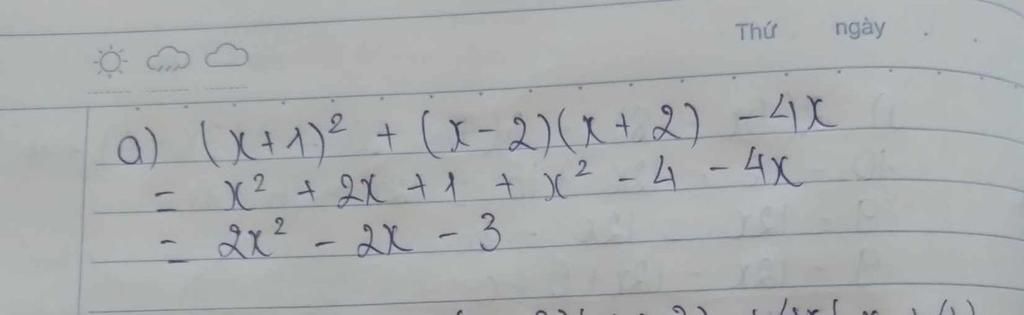 Thứ ngày
a) (x+1)² + (x-2)(x+2) - 4x
= x² + 2x + 1 + x² - 4 - 4x
= 2x² - 2x - 3